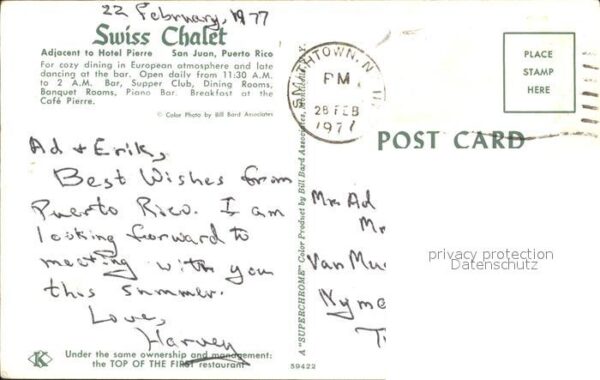 22 February, 1977
Swiss Chalet
Adjacent to Hotel Pierre San Juan, Puerto Rico
For cozy dining in European atmosphere and late
dancing at the bar. Open daily from 11:30 A.M.
to 2 A.M. Bar, Supper Club, Dining Rooms,
Banquet Rooms, Piano Bar. Breakfast at the
Café Pierre.
© Color Photo by Bill Bard Associates
Ad & Erik,
Best Wishes from
Puerto Rico. I am
looking forward to
meeting with you
this summer.
Love,
Harvey
K
Under the same ownership and management:
the TOP OF THE FIRST restaurant
A "SUPERCHROME" Color Product by Bill Bard Associates, N. Y.
59422
SMITHTOWN, N.
PM
28 FEB
1977
PLACE
STAMP
HERE
POST CARD
Mrs Ad
Mr
Van Mu
Nyme
privacy protection
Datenschutz